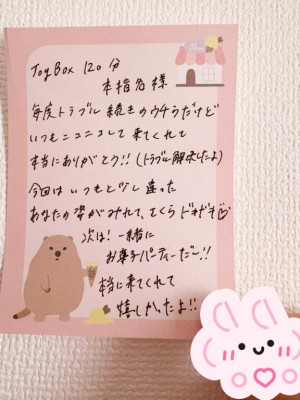 Toy Box 120分
本指名様
毎度トラブル続きのウチらだけど
いつもニコニコして来てくれて
本当にありがとう!!(トラブル解決したよ)
今回はいつもと少し違った
あなたの姿がみれて、さくらドキドキ♡
次は!一緒に
お菓子パーティーだ〜!!
本当に来てくれて
嬉しかったよ!!